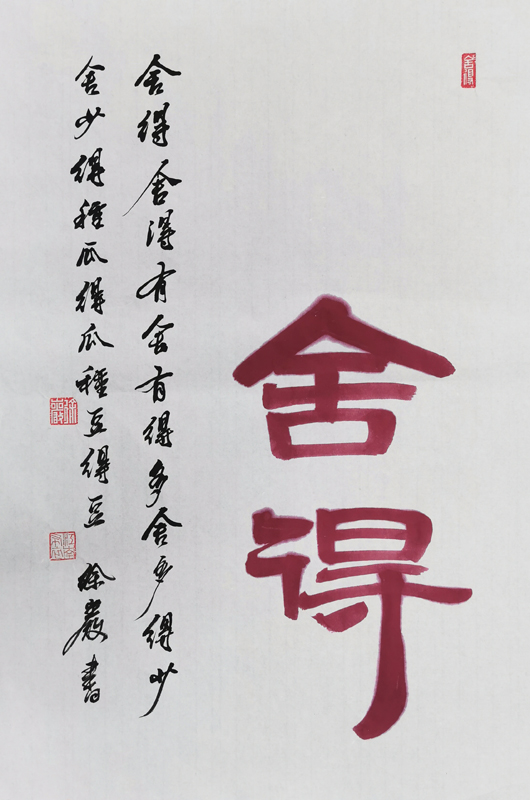 舍得
舍得
舍得舍得有舍有得多舍多得少
舍少得種瓜得瓜種豆得豆 徐嚴書